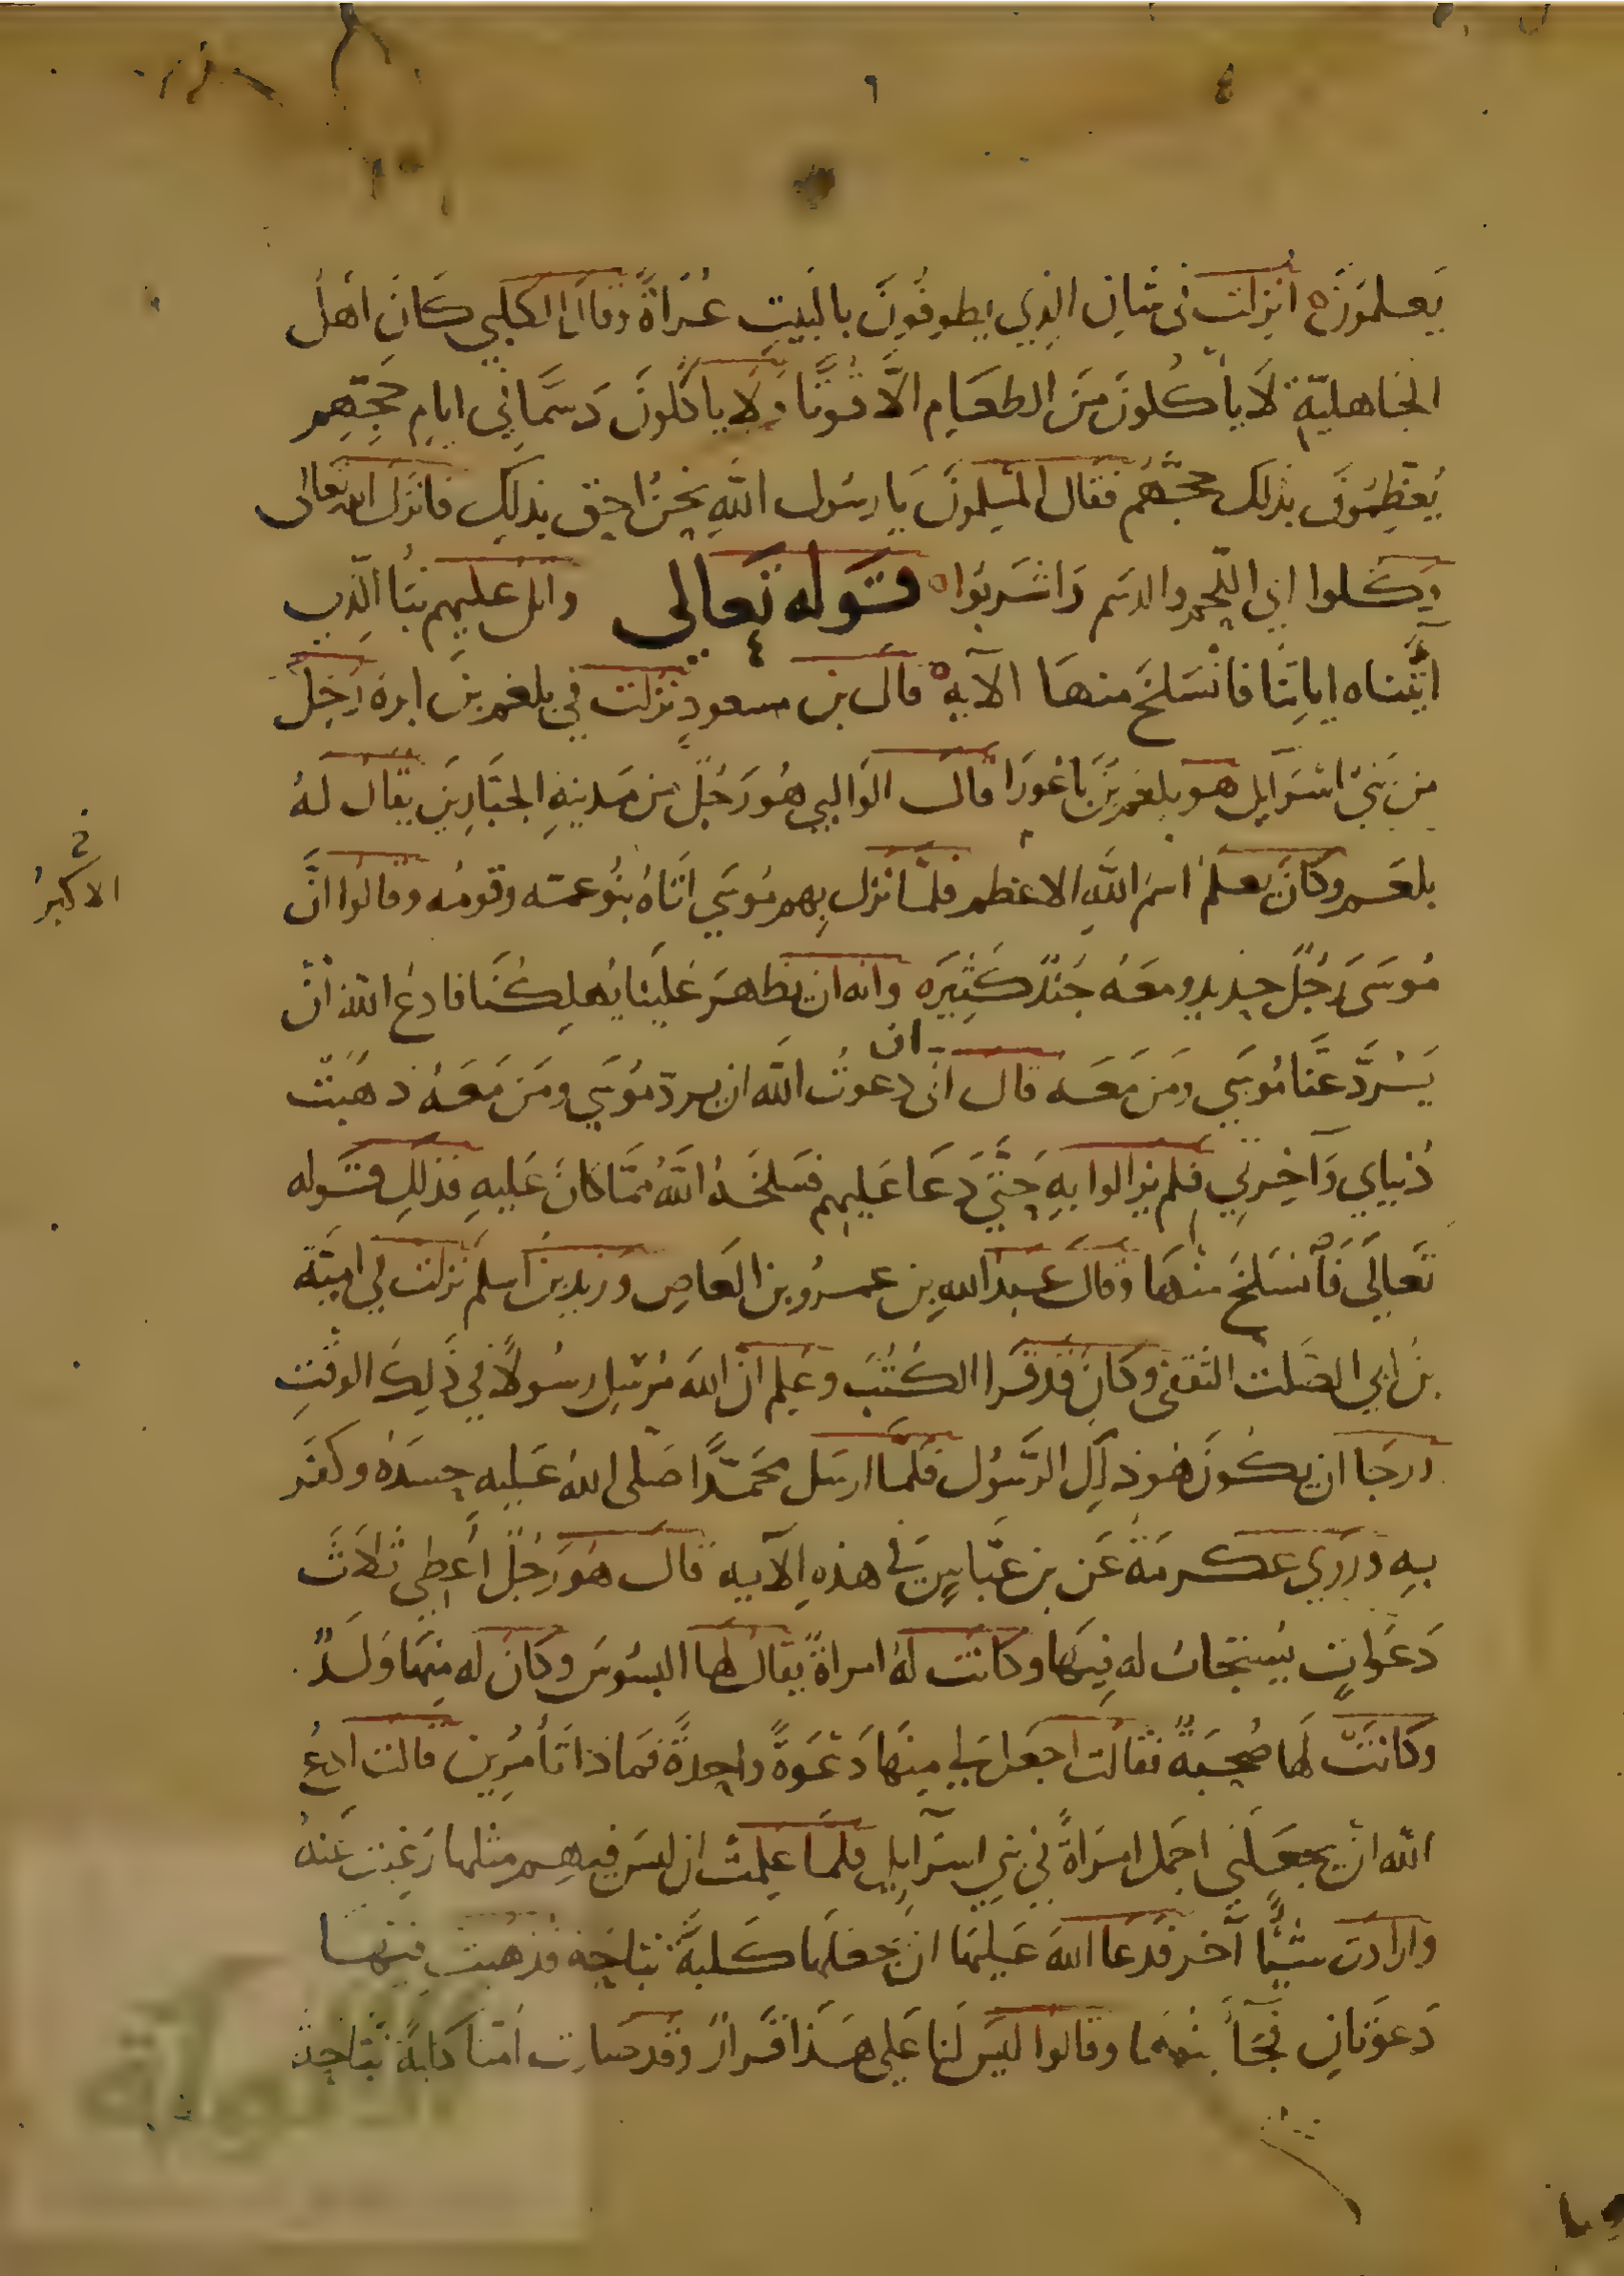 يَعلمُوَنَ ه انزلت في شان الذين يطوفُونَ بالبَيتِ عُرَاةً وقال الكلبي كَانَ أهلُ
الجَاهليّةِ لَا يأكُلونَ مِنَ الطعَامِ الَّا قوتًا وَلَا ياكلونَ دَسمًا في ايامِ حَجِّهِم
يُعَظِمُونَ بذلك حجَّهُم فقال المسلمونَ يَا رسُول اللهِ نحنُ احق بذلِكَ فانزَل الله تعالى
وَكلوا اي اللحم والدسَمِ وَاشرَبوُا ه قَوله تَعَالى واتلُ عليهم نبَأ الَّذِي
اتينَاه اياتِنَا فانسَلخَ منهَا الآيه ه قالَ بن مسعودٍ نزلت في بلعم بن ابره رَجل
من بَني اسرَايل هو بلعم بن بَاعُورَا قال الوَالبي هُورَجُلٌ من مَدينةِ الجبَّارِينَ يقالُ لهُ
بلعَم وكَانَ يعلمُ اسمَ اللهِ الاعظم فلمَّا نزل بِهم مُوسَى اتَاهُ بنُو عمّه وقومُه وقالوا انَّ
الاكبرُ
مُوسَى رَجُلٌ حديد ومعَهُ جُندٌ كَثِيرَه وانه ان يظهرَ عَلينَا يُهلِكُنَا فادعُ اللهَ انْ
يَرُدَّ عَنَّا مُوسَى ومَن مَعَه قال اني ان دعوتُ الله ان يرد مُوسَى ومَن مَعَهُ ذهبَت
دُنيايَ وَآخِرتي فلم يزالوا بهِ حَتَّى دَعَا عَليهم فسَلخَهُ اللهُ ممَّا كانَ عَليهِ فذلِكَ قَوله
تَعَالَى فَانسَلخَ منهَا وقالَ عبد اللهِ بن عمرُو بن العَاصِ وَزيد بن اسلَم نَزلت في اميَّة
بنُ ابي الصَلت الثقفي وكَانَ قد قَرا الكُتُبَ وعَلِم انَّ اللهَ مُرسِل رسُولًا في ذَلِكَ الوقتِ
ورجَا ان يكُونَ هُو ذلِكَ الرَّسُول فلمَّا ارسَل محَمَّدًا صَلى اللهُ عَليهِ حسَدهُ وكفَر
بهِ وروَي عكرمَة عَن بن عَبَّاسٍ في هذهِ الآيه قال هُو رَجُلٌ أعطِي ثلاثَ
دَعَوَاتٍ يُستجابُ له فِيهَا وكانت لهُ امراةٌ يقالُ لهَا البسُوسَ وكانَ له منهَا وَلَدٌ
وكانتَ لَها صُحبَةٌ فقالَت اجعَل لي مِنهَا دَعْوَةً واحِدةً فمَاذا تَأمُرِينَ قالت ادعُ
الله ان يجعَلني اجمل امرَاةً في بَني اسرَايل فلمَّا عَلِمتْ ان ليسَ فيهِم مثلها رَغِبت عَنهُ
وارادت شيئًا آخر فدعَا اللهَ عَليهَا ان يجعَلهَا كَلبةً نبَاحَة فذهبت فيهَا
دَعوَتانِ فجآ بنُوهَا وقالوا ليسَ لَنا عَلى هَذا قَرارٌ وَقد صَارت امّنا كلبَةً نباحَة